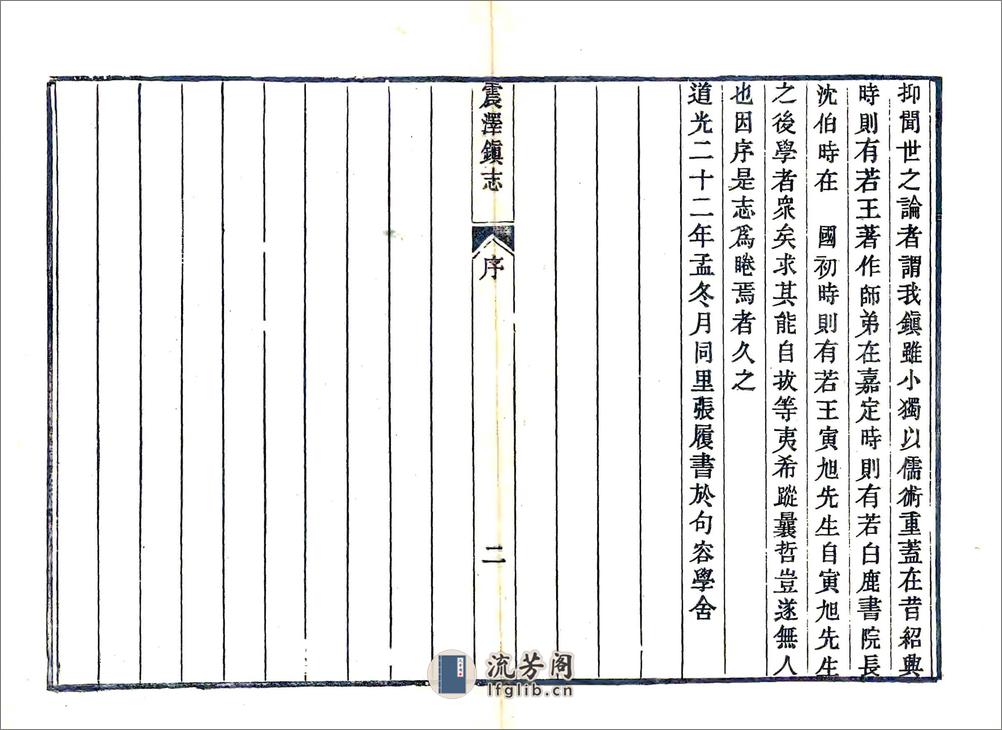 抑聞世之論者謂我鎮雖小獨以儒術重蓋在昔紹興
時則有若王著作師弟在嘉定時則有若白鹿書院長
沈伯時在　國初時則有若王寅旭先生自寅旭先生
之後學者衆矣求其能自拔等夷希蹤曩哲豈遂無人
也因序是志爲睠焉者久之
道光二十二年孟冬月同里張履書於句容學舍
震澤鎮志
序
二
流芳阁
lfglib.cn